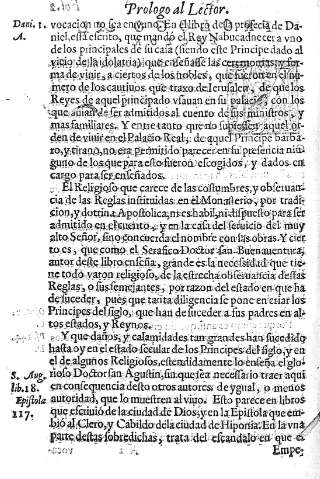 Prologo al Lector.
Dani. 1. vocacion no sea en vano. En el libro de la profecia de Da-
A. niel, está escrito, que mandó el Rey Nabucadnecer a vno
de los principales de su casa (siendo este Principe dado al
vicio de la idolatria) que enseñase las ceremonias, y for-
ma de viuir, a ciertos de los nobles, que fueron en el nu-
mero de los cautiuos que traxo de Ierusalem, de que los
Reyes de aquel principado vsauan en su palacio, con los
que auian de ser admitidos al cuento de sus ministros, y
mas familiares. Y entre tanto que no supiessen aquel or-
den de viuir en el Palacio Real, de aquel Principe barba-
ro, y tirano, no era permitido parecer en su presencia nin-
guno de los que para esto fueron escogidos, y dados en
cargo para ser enseñados.
El Religioso que carece de las costumbres, y obseruan-
cia de las Reglas instituidas en el Monasterio, por tradi-
cion, y dottrina Apostolica, ni es habil, ni dispuesto para ser
admitido en el cuento, y en la casa del seruicio del muy
alto Señor, sino concuerda el nombre con sus obras. Y cier-
to es, que como el Serafico Doctor san Buenauentura,
autor deste libro enseña, grande es la necessidad que tie-
ne todo varon religioso, de la estrecha obseruancia dessas
Reglas, o sus semejantes, por razon del estado en que ha
de suceder, pues que tanta diligencia se pone en criar los
Principes del siglo, que han de suceder a sus padres en al-
tos estados, y Reynos.
Y que daños, y calamidades tan grandes han sucedido
hasta oy en el estado secular de los Principes del siglo, y en
el de algunos Religiosos, estendidamente lo enseña el glo-
S. Aug. rioso Doctor san Agustin, sin que sea necessario traer aqui
lib. 18. en consequencia desto otros autores de ygual, o menos
Epistola autoridad, que lo muestren al viuo. Esto parece en libros
117. que escriuió de la ciudad de Dios, y en la Epistola que em-
bió al Clero, y Cabildo de la ciudad de Hiponia. En la vna
parte destas sobredichas, trata del escandalo en que el
Empe-